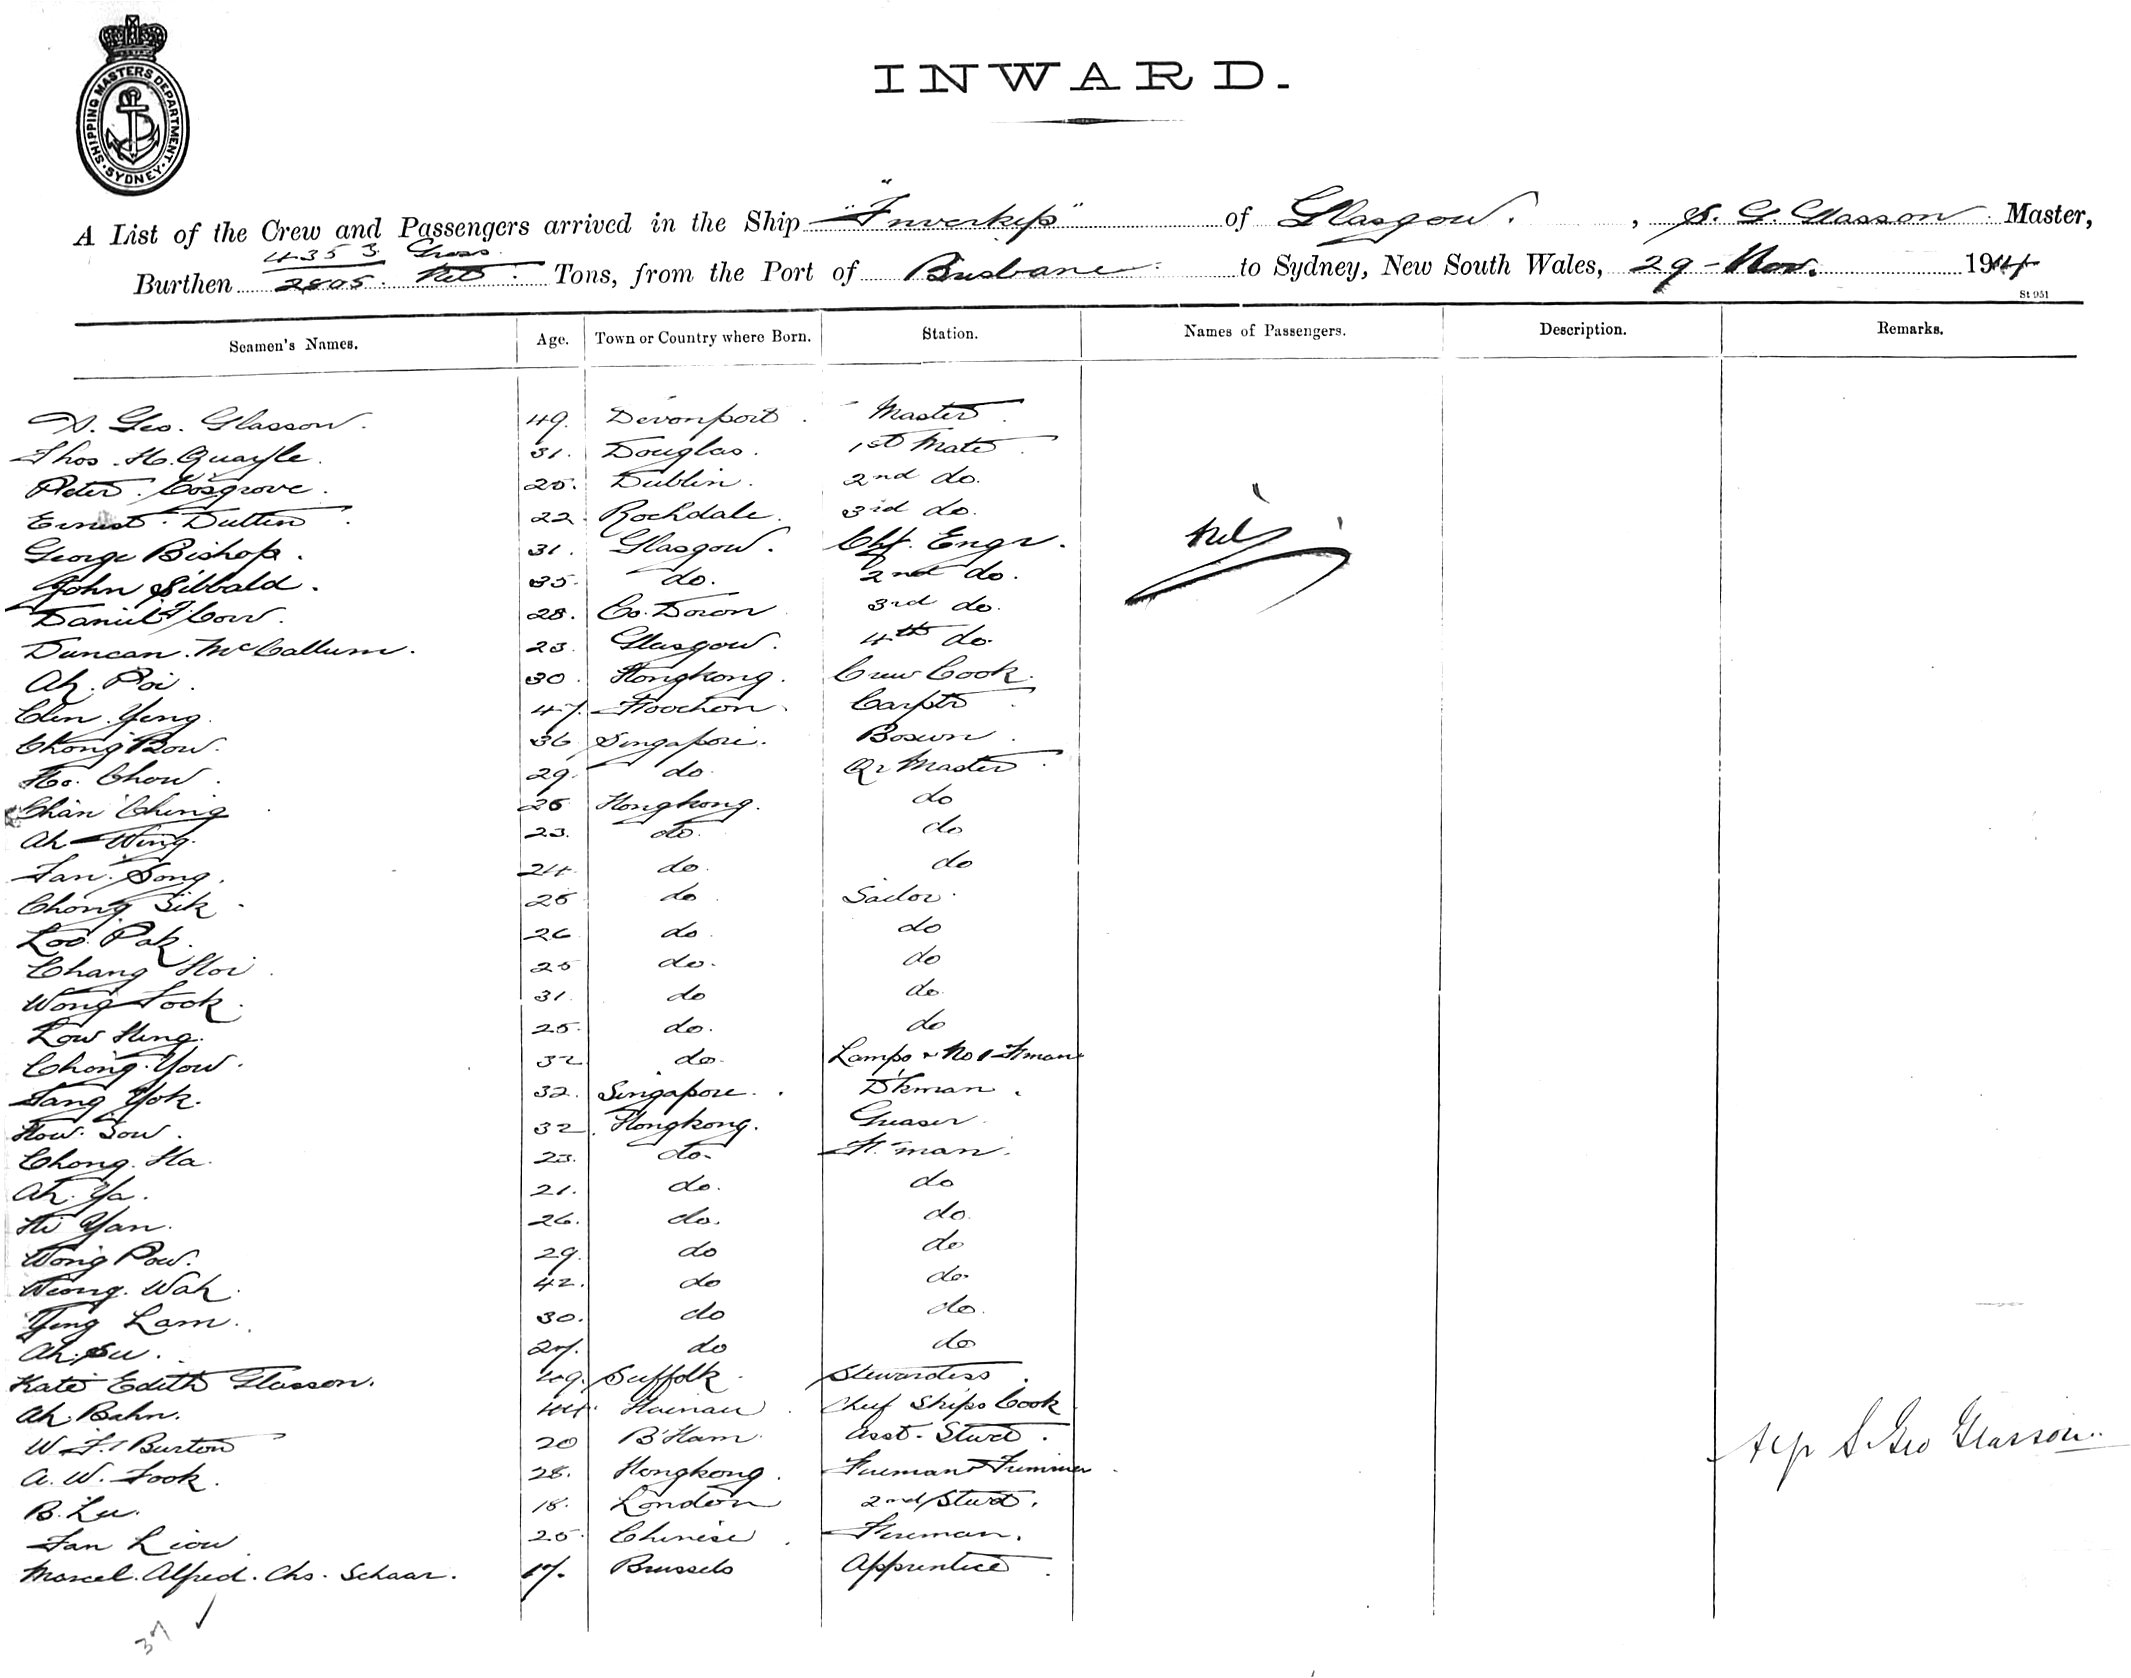 SHIPPING MASTERS DEPARTMENT · SYDNEY ·
INWARD.
A List of the Crew and Passengers arrived in the Ship "Inverkip" of Glasgow. , S. G. Glasson Master,
4353 Gross
Burthen 2805. Net. Tons, from the Port of Brisbane to Sydney, New South Wales, 29 - Nov. 1914
St 951
Seamen's Names. Age. Town or Country where Born. Station. Names of Passengers. Description. Remarks.
S. Geo. Glasson. 49. Devonport. Master.
Thos. H. Quayle. 31. Douglas. 1st Mate
Peter. Cosgrove. 25. Dublin. 2nd do.
Ernest. Dutten. 22. Rochdale. 3rd do.
nil
George Bishop. 31. Glasgow. Chf. Engr.
John Sibbald. 35. do. 2nd do.
Daniel Cow. 28. Co. Down 3rd do.
Duncan. McCallum. 23. Glasgow. 4th do.
Ah. Poi. 30. Hongkong. Crew Cook.
Chin. Yeng. 47. Foochow. Carptr
Chong Bow. 36 Singapore. Boswn.
Ho. Chow. 29. do. Qr Master.
Chan Ching 26 Hongkong. do
Ah Wing. 23. do. do
Fan. Song. 24. do. do
Chong Sik. 25 do Sailor.
Loo. Pak. 26 do. do
Chang Hoi. 25 do. do
Wong Fook. 31. do do.
Low Heng. 25. do. do
Chong. Yow. 32 do. Lamps & No 1 Fman
Tang Yok. 32. Singapore. D'kman.
How. Sow. 32. Hongkong. Greaser.
Chong. Ha. 23. do. F.man.
Ah. Ya. 21. do. do
Hi Yan. 26. do. do.
Wong Pow. 29. do do
Weong. Wah. 42. do do.
Yeng Lam. 30. do do.
Ah. Su. 27. do do
Kate Edith Glasson. 49. Suffolk. Stewardess.
Ah. Bahn. 44. Hainan. Chief Ships Cook
W. F. Burton 20 B'Ham. Asst. Stwd.
A. W. Fook. 28. Hongkong. Fireman & Trimmer.
S. Geo Glasson.
B. Lee. 18. London 2nd Stwd.
Fan Liow. 25. Chinese. Fireman.
Marcel. Alfred. Chs. Schaar. 17. Brussels Apprentice.
37